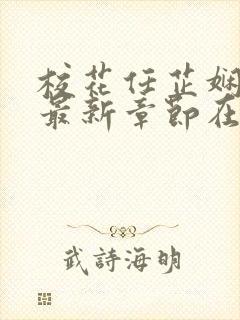 校花任芷娴
最新章节在
武詩海明